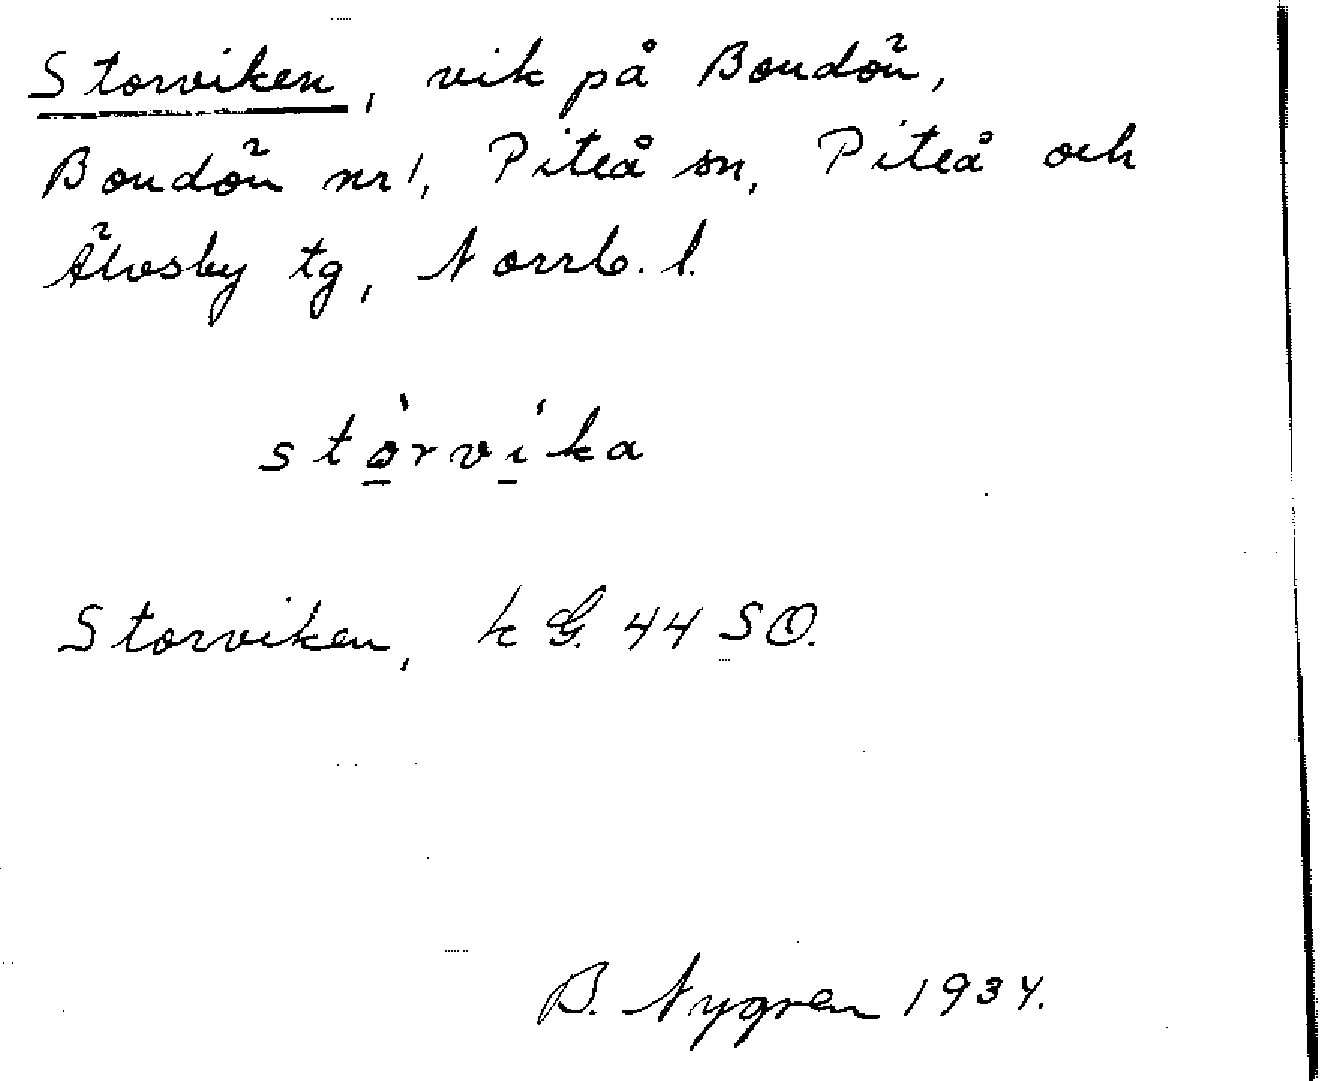 Storviken, vik på Bondön,
Bondön nr 1, Piteå sn, Piteå och
Älvsby tg, Norrb. l.
stò̲rví̲ka
Storviken, k G. 44 SO.
B. Nygren 1934.